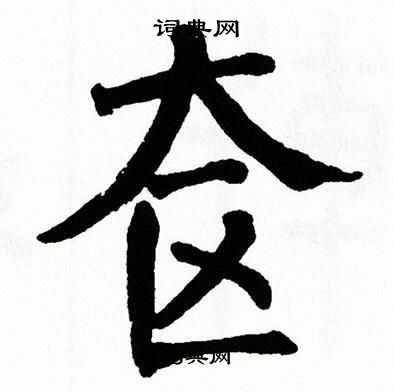 词典网
奁
词典网